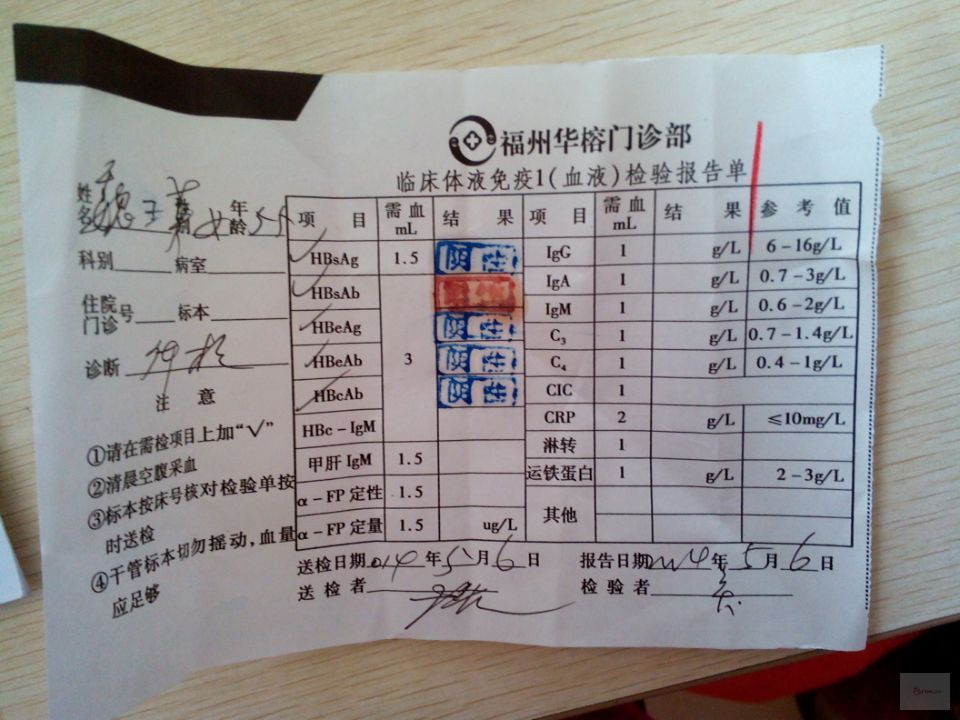 福州华榕门诊部
临床体液免疫1(血液)检验报告单
姓名 年龄
科别 病室
住院门诊号 标本
诊断
注 意
①请在需检项目上加“√”
②清晨空腹采血
③标本按床号核对检验单按时送检
④干管标本切勿摇动,血量应足够
项 目 需血mL 结 果 项 目 需血mL 结 果 参 考 值
HBsAg 1.5 阴性 IgG 1 g/L 6-16g/L
HBsAb IgA 1 g/L 0.7-3g/L
HBeAg 阴性 IgM 1 g/L 0.6-2g/L
HBeAb 3 阴性 C₃ 1 g/L 0.7-1.4g/L
HBcAb 阴性 C₄ 1 g/L 0.4-1g/L
HBc-IgM CIC 1
CRP 2 g/L ≤10mg/L
甲肝IgM 1.5 淋转 1
α-FP定性 1.5 运铁蛋白 1 g/L 2-3g/L
α-FP定量 1.5 ug/L 其他
送检日期 014年5月6日 报告日期 2014年5月6日
送检者 检验者